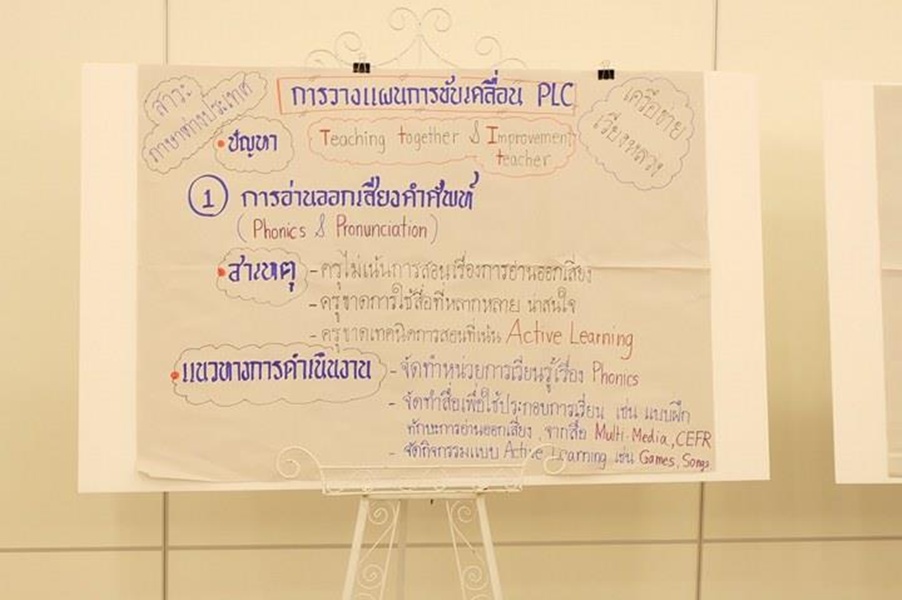 สาระ
ภาษาต่างประเทศ
การวางแผนการขับเคลื่อน PLC
เครือข่าย
เรียงหลวง
• ปัญหา
Teaching together & Improvement
teacher
① การอ่านออกเสียงคำศัพท์
(Phonics & Pronunciation)
• สาเหตุ
- ครูไม่เน้นการสอนเรื่องการอ่านออกเสียง
- ครูขาดการใช้สื่อที่หลากหลาย น่าสนใจ
- ครูขาดเทคนิคการสอนที่เน้น Active Learning
• แนวทางการดำเนินงาน
- จัดทำหน่วยการเรียนรู้เรื่อง Phonics
- จัดทำสื่อเพื่อใช้ประกอบการเรียน เช่น แบบฝึก
ทักษะการอ่านออกเสียง, จากสื่อ Multi-Media, CEFR
- จัดกิจกรรมแบบ Active Learning เช่น Games, Songs